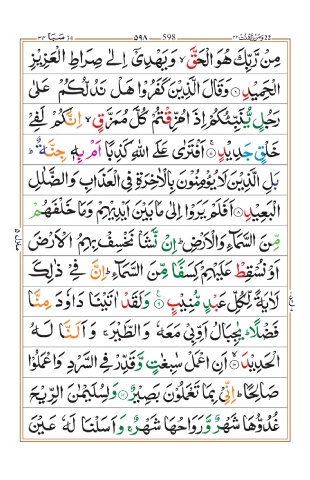 ومن يقنت ٢٢ 598 ٥٩٨ سبا ٣٤
مِنْ رَّبِّكَ هُوَ الْحَقَّ ۙ وَيَهْدِيْۤ اِلٰى صِرَاطِ الْعَزِيْزِ
الْحَمِيْدِ ۝ وَقَالَ الَّذِيْنَ كَفَرُوْا هَلْ نَدُلُّكُمْ عَلٰى
رَجُلٍ يُّنَبِّئُكُمْ اِذَا مُزِّقْتُمْ كُلَّ مُمَزَّقٍ ۙ اِنَّكُمْ لَفِيْ
خَلْقٍ جَدِيْدٍ ۝ اَفْتَرٰى عَلَى اللّٰهِ كَذِبًا اَمْ بِهٖ جِنَّةٌ ؕ
بَلِ الَّذِيْنَ لَا يُؤْمِنُوْنَ بِالْاٰخِرَةِ فِي الْعَذَابِ وَالضَّلٰلِ
الْبَعِيْدِ ۝ اَفَلَمْ يَرَوْا اِلٰى مَا بَيْنَ اَيْدِيْهِمْ وَمَا خَلْفَهُمْ
مِّنَ السَّمَآءِ وَالْاَرْضِ ؕ اِنْ نَّشَاْ نَخْسِفْ بِهِمُ الْاَرْضَ
اَوْ نُسْقِطْ عَلَيْهِمْ كِسَفًا مِّنَ السَّمَآءِ ؕ اِنَّ فِيْ ذٰلِكَ
لَاٰيَةً لِّكُلِّ عَبْدٍ مُّنِيْبٍ ۝ وَلَقَدْ اٰتَيْنَا دَاوٗدَ مِنَّا
فَضْلًا ؕ يٰجِبَالُ اَوِّبِيْ مَعَهٗ وَالطَّيْرَ ۚ وَاَلَنَّا لَهُ
الْحَدِيْدَ ۝ اَنِ اعْمَلْ سٰبِغٰتٍ وَّقَدِّرْ فِي السَّرْدِ وَاعْمَلُوْا
صَالِحًا ؕ اِنِّيْ بِمَا تَعْمَلُوْنَ بَصِيْرٌ ۝ وَلِسُلَيْمٰنَ الرِّيْحَ
غُدُوُّهَا شَهْرٌ وَّرَوَاحُهَا شَهْرٌ ۚ وَاَسَلْنَا لَهٗ عَيْنَ